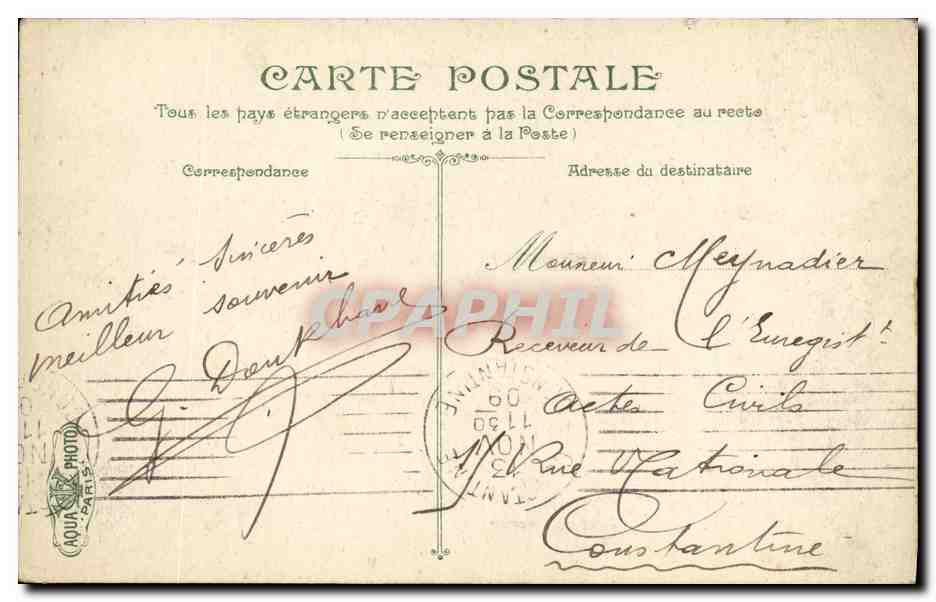 CARTE POSTALE
Tous les pays étrangers n'acceptent pas la Correspondance au recto
(Se renseigner à la Poste)
Correspondance
Adresse du destinataire
Amitiés Sincères
meilleur souvenir
G.
Monsieur Meynadier
Receveur de l'Enregist.t
Actes Civils
Rue Nationale
Constantine
CONSTANTINE
09
11 30
NOV
CPAPHIL
AQUA PHOTO
PARIS